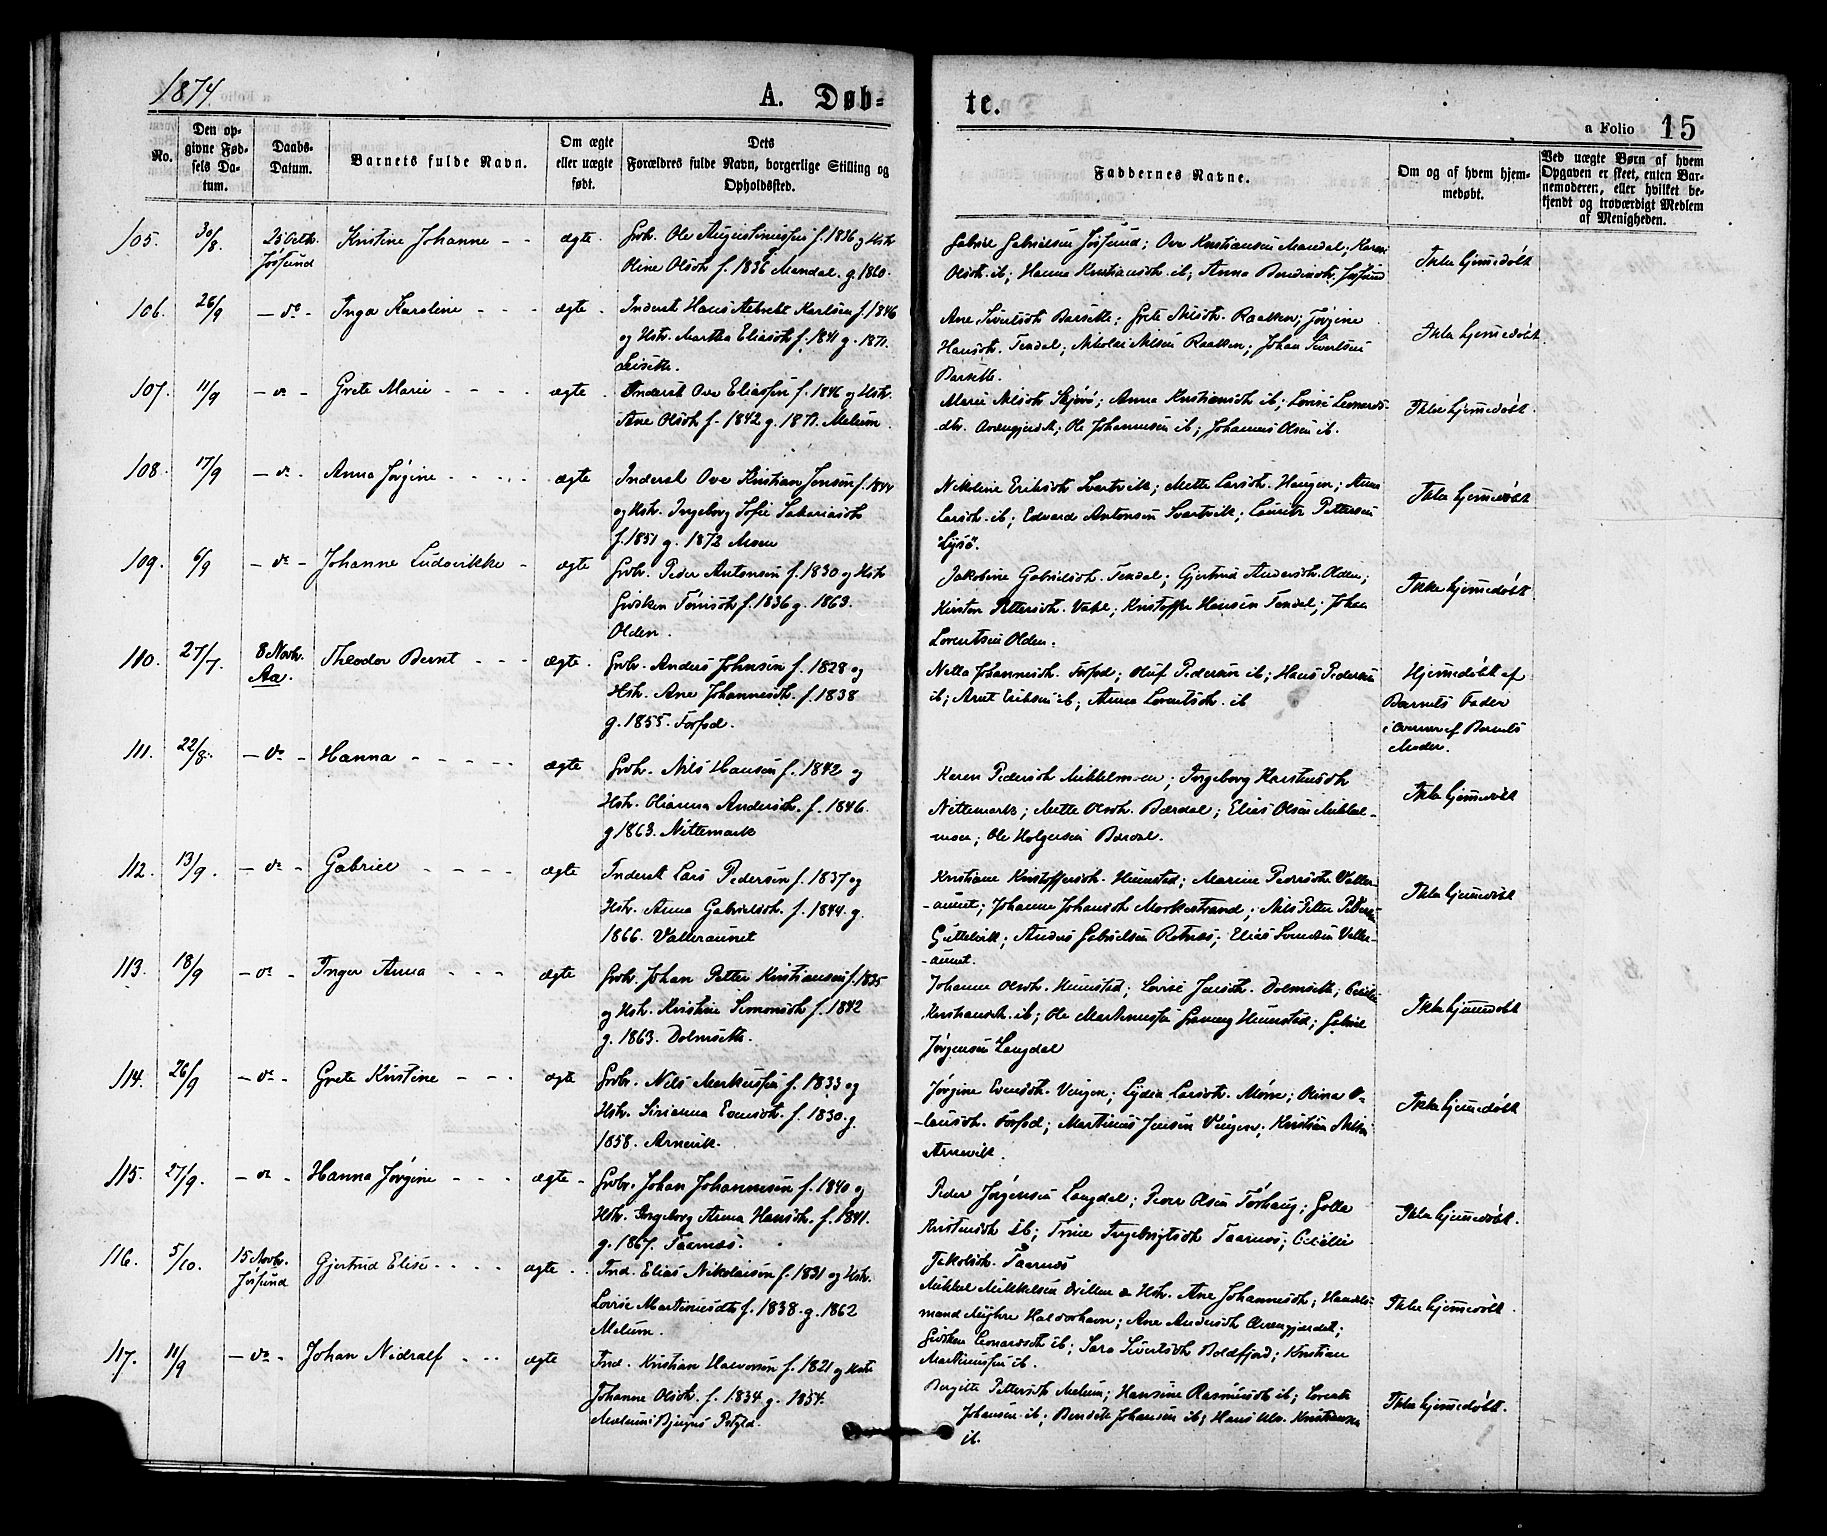 1874.
A. Døb-
te.
a Folio 15
No.
Den op-
givne Fød-
sels Da-
tum.
Daabs-
Datum.
Barnets fulde Navn.
Om ægte
eller uægte
født.
Dets
Forældres fulde Navn, borgerlige Stilling og
Opholdssted.
Faddernes Navne.
Om og af hvem hjem-
medøbt.
Ved uægte Børn af hvem
Opgaven er skeet, enten Bar-
nemoderen, eller hvilket be-
kjendt og troværdigt Medlem
af Menigheden.
105. 30/8. 25 Octb. Jøssund Kristine Johanne - - ægte.
Grbr. Ole Augustinussen f. 1836 og Hstr.
Oline Olsdtr. f. 1836 Mandal. g. 1860.
Gabriel Gabrielsen Jøssund; Ove Kristiansen Mandal; Karen
Olsdtr. ib; Hanna Kristiansdtr. ib; Anna Bendiksdtr. Jøssund
Ikke hjemmedøbt
106. 26/9 - do - Inga Karoline - - - ægte
Inderst Hans Albrekt Karlsen f. 1846
og Hstr. Martha Eliasdtr. f. 1841 g. 1871.
Ane Sivertsdtr. Barsette; Grete Nilsdtr. Raakken; Jørgine
Hansdtr. Teudal; Nikolai Nilsen Raakken; Johan Sivertsen
Barsette.
Ikke hjemmedøbt.
107. 11/9 - do - Grete Marie - - - ægte.
Inderst Ove Eliassen f. 1846 og Hstr.
Ane Olsdtr. f. 1842 g. 1871. Melum.
Marie Nilsdtr. Skjørø; Anna Kristiansdtr. ib; Lovise Leonards-
dtr. Ovrengjerdet; Ole Johannesen ib; Johannes Olsen ib.
Ikke hjemmedøbt.
108. 17/9 - do - Anna Jørgine - - - ægte
Inderst Ove Kristian Jensen f. 1844
og Hstr. Ingeborg Sofie Sakariasdtr.
f. 1851 g. 1872 Moen
Nikoline Eriksdtr. Svartvik; Mette Larsdtr. Haugen; Anna
Larsdtr. ib; Edvard Antonsen Svartvik; Lauritz Pettersen
Lysø.
Ikke hjemmedøbt
109. 6/9 - do - Johanne Ludovikke - ægte
Grbr. Peder Antonsen f. 1830 og Hstr.
Gidsken Tønisdtr. f. 1836 g. 1863.
Olden.
Jakobine Gabrielsdtr. Teudal; Gjertrud Andersdtr. Olden;
Kirsten Pettersdtr. Vahl; Kristoffer Hansen Teudal; Johan
Lorentsen Olden.
Ikke hjemmedøbt
110. 27/7. 8 Novbr. Aa. Theodor Bernt - - - ægte.
Grbr. Anders Johnsen f. 1828 og
Hstr. Ane Johannesdtr. f. 1838
g. 1855. Forfod.
Netta Johannesdtr. Forfod; Oluf Pedersen ib; Hans Pedersen
ib; Arnt Eriksen ib; Anna Lorentsdtr. ib
Hjemmedøbt af
Barnets Fader
i Overvær af Barnets
Moder.
111. 22/8. - do - Hanna - - - - - ægte
Grbr. Nils Hansen f. 1842 og
Hstr. Olianna Andersdtr. f. 1846.
g 1863. Nittemark
Karen Pedersdtr. Mikkelmoen; Ingeborg Karstensdtr.
Nittemark; Mette Olsdtr. Bærdal; Elias Olsen Mikkel-
moen; Ole Holgersen Bærdal.
Ikke hjemmedøbt
112. 13/9. - do - Gabriel - - - - ægte
Inderst Lars Pedersen f. 1837 og
Hstr. Anna Gabrielsdtr. f. 1844. g.
1866. Valleraunet
Kristiane Kristoffersdtr. Humstad; Marine Pedersdtr. Valler-
aunet; Johanne Johansdtr. Morkestrand; Nils Petter Pedersen
Guttelvik; Anders Gabrielsen Refnæs; Elias Svendsen Valler-
aunet.
Ikke hjemmedøbt
113. 18/9 - do - Inger Anna - - - ægte
Grbr. Johan Petter Kristiansen f. 1835
og Hstr. Kristine Simonsdtr. f. 1842
g. 1863. Dolmsette.
Johanne Olsdtr. Humstad; Lovise Jensdtr. Dolmsette; Cecilie
Kristiansdtr. ib; Ole Martinussen Humstad; Gabriel
Jørgensen Langdal
Ikke hjemmedøbt
114. 26/9 - do - Grete Kristine - - - ægte
Grbr. Nils Markussen f. 1833 og
Hstr. Sirianna Evensdtr. f. 1830. g.
1858. Arnevik.
Jørgine Evensdtr. Vingen; Lydia Larsdtr. Mørre; Olina O-
lausdtr. Forfod; Martinus Jensen Vingen; Kristian Nilsen
Arnevik.
Ikke hjemmedøbt
115. 27/9. - do - Hanna Jørgine - - - ægte -
Grbr. Johan Johannesen f. 1840 og
Hstr. Ingeborg Anna Hansdtr. f. 1841.
g. 1867. Taarnæs.
Peder Jørgensen Langdal; Peder Olsen Tørhaug; Golla
Kristensdtr. ib; Trine Ingebrigtsdtr. Taarnæs; Cecilie
Jakobsdtr. Taarnæs
Ikke hjemmedøbt.
116. 5/10. 15 Novbr. Jøssund Gjertrud Elise - - - - ægte
Ind. Elias Nikolaisen f. 1831 og Hstr.
Lovise Martinusdtr. f. 1838. g. 1862
Melum.
Mikkel Mikkelsen & Hstr. Ane Johannesdtr; Handels-
mand Halvorhavn; Ane Andersdtr. Ovrengjerdet;
Gidsken Leonardsdtr. ib; Sara Sivertsdtr. Boldfjord; Kristian
Martinussen ib.
Ikke hjemmedøbt.
117. 11/9 - do - Johan Nidralf - - - ægte
Ind. Kristian Halvorsen f. 1821 og Hstr.
Johanne Olsdtr. f. 1834 g. 1854.
Bergitte Pettersdtr. Melum; Hansine Rasmusdtr. ib; Lorents
Johansen ib; Bendik Johansen ib; Hans Kristiansen
ib.
Ikke hjemmedøbt.